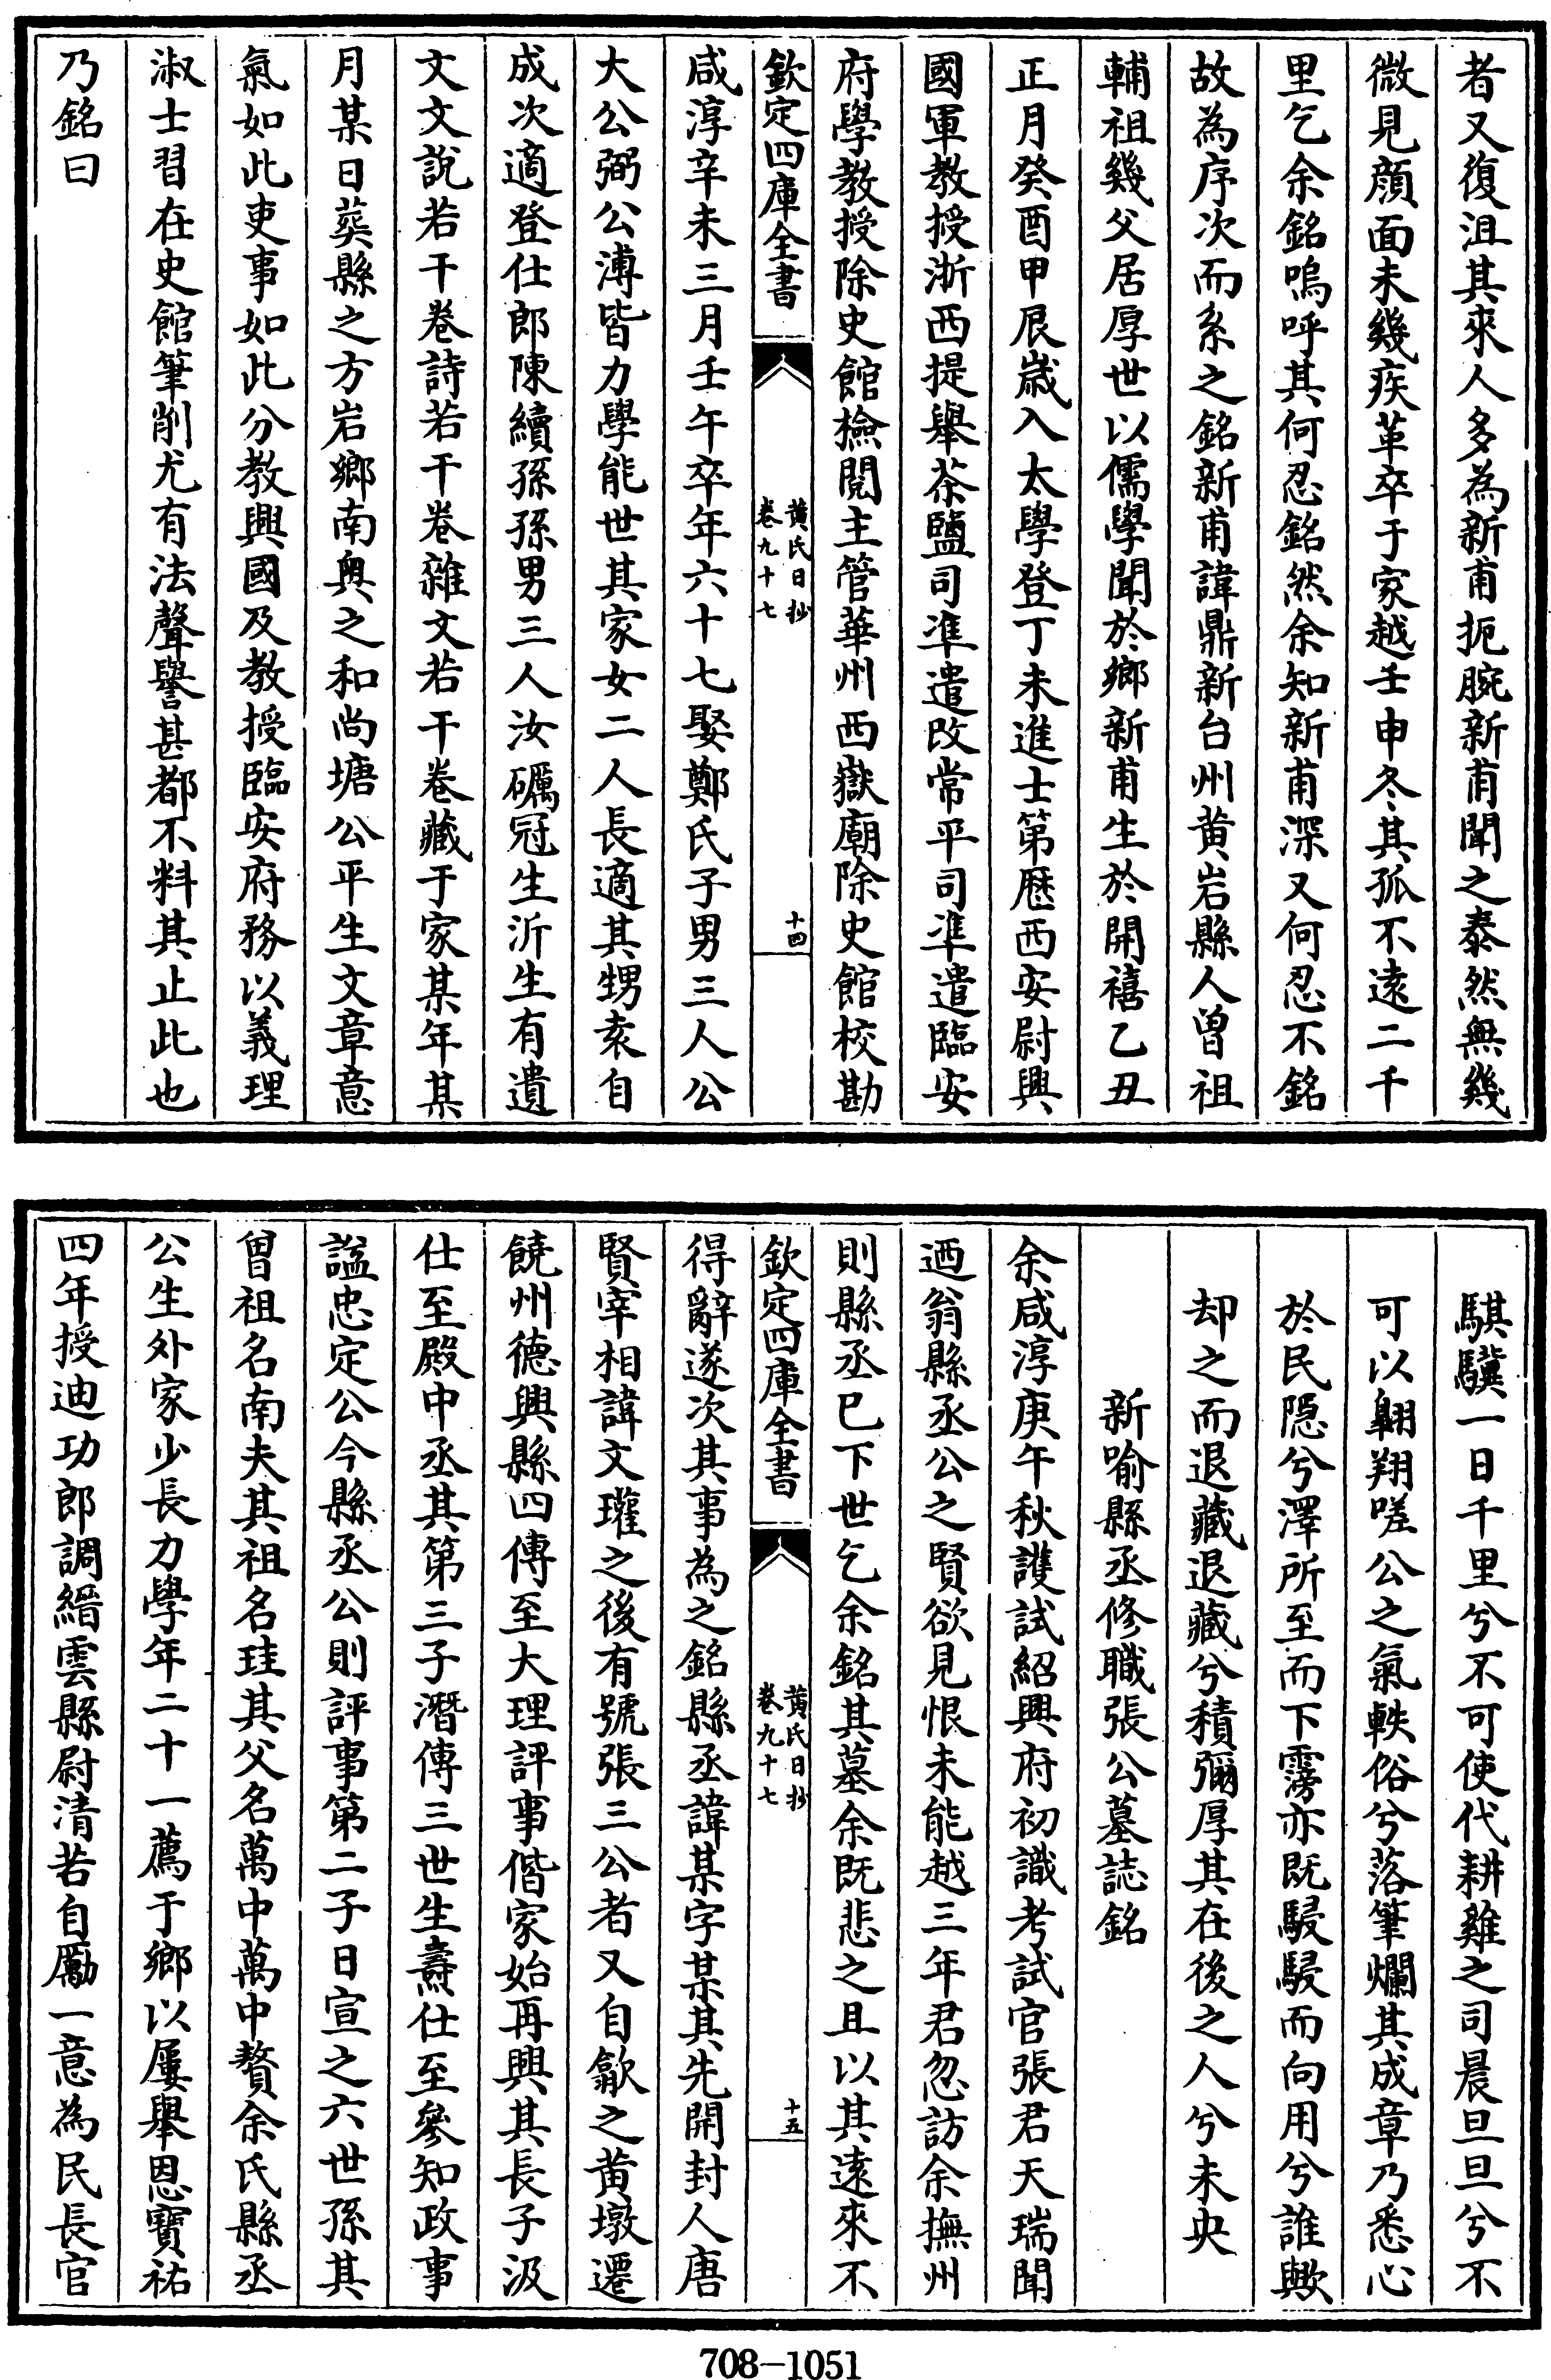 者又復沮其來人多為新甫扼腕新甫聞之泰然無幾
微見顔面未幾疾革卒于家越壬申冬其孤不遠二千
里乞余銘嗚呼其何忍銘然余知新甫深又何忍不銘
故為序次而系之銘新甫諱鼎新台州黄岩縣人曽祖
輔祖幾父居厚世以儒學聞於鄉新甫生於開禧乙丑
正月癸酉甲辰歲入太學登丁未進士第歴西安尉興
國軍教授浙西提舉茶鹽司凖遣改常平司凖遣臨安
府學教授除史館檢閲主管華州西嶽廟除史館校勘
欽定四庫全書
黄氏日抄
卷九十七
十四
咸淳辛未三月壬午卒年六十七娶鄭氏子男三人公
大公弼公溥皆力學能世其家女二人長適其甥袁自
成次適登仕郎陳續孫孫男三人汝礪冠生沂生有遺
文文說若干卷詩若干卷雜文若干卷藏于家某年某
月某日葬縣之方岩鄉南奥之和尚塘公平生文章意
氣如此吏事如此分教興國及教授臨安府務以義理
淑士習在史館筆削尤有法聲譽甚都不料其止此也
乃銘曰
騏驥一日千里兮不可使代耕雞之司晨旦旦兮不
可以翺翔嗟公之氣軼俗兮落筆爛其成章乃悉心
於民隠兮澤所至而下霶亦既駸駸而向用兮誰歟
却之而退藏退藏兮積彌厚其在後之人兮未央
新喻縣丞修職張公墓誌銘
余咸淳庚午秋護試紹興府初識考試官張君天瑞聞
迺翁縣丞公之賢欲見恨未能越三年君忽訪余撫州
則縣丞已下世乞余銘其墓余既悲之且以其遠來不
欽定四庫全書
黄氏日抄
卷九十七
十五
得辭遂次其事為之銘縣丞諱某字某其先開封人唐
賢宰相諱文瓘之後有號張三公者又自歙之黄墩遷
饒州德興縣四傳至大理評事偕家始再興其長子汲
仕至殿中丞其第三子潛傳三世生燾仕至參知政事
諡忠定公今縣丞公則評事第二子日宣之六世孫其
曽祖名南夫其祖名珪其父名萬中萬中贅余氏縣丞
公生外家少長力學年二十一薦于鄉以屢舉恩寶祐
四年授迪功郎調縉雲縣尉清苦自勵一意為民長官
708—1051